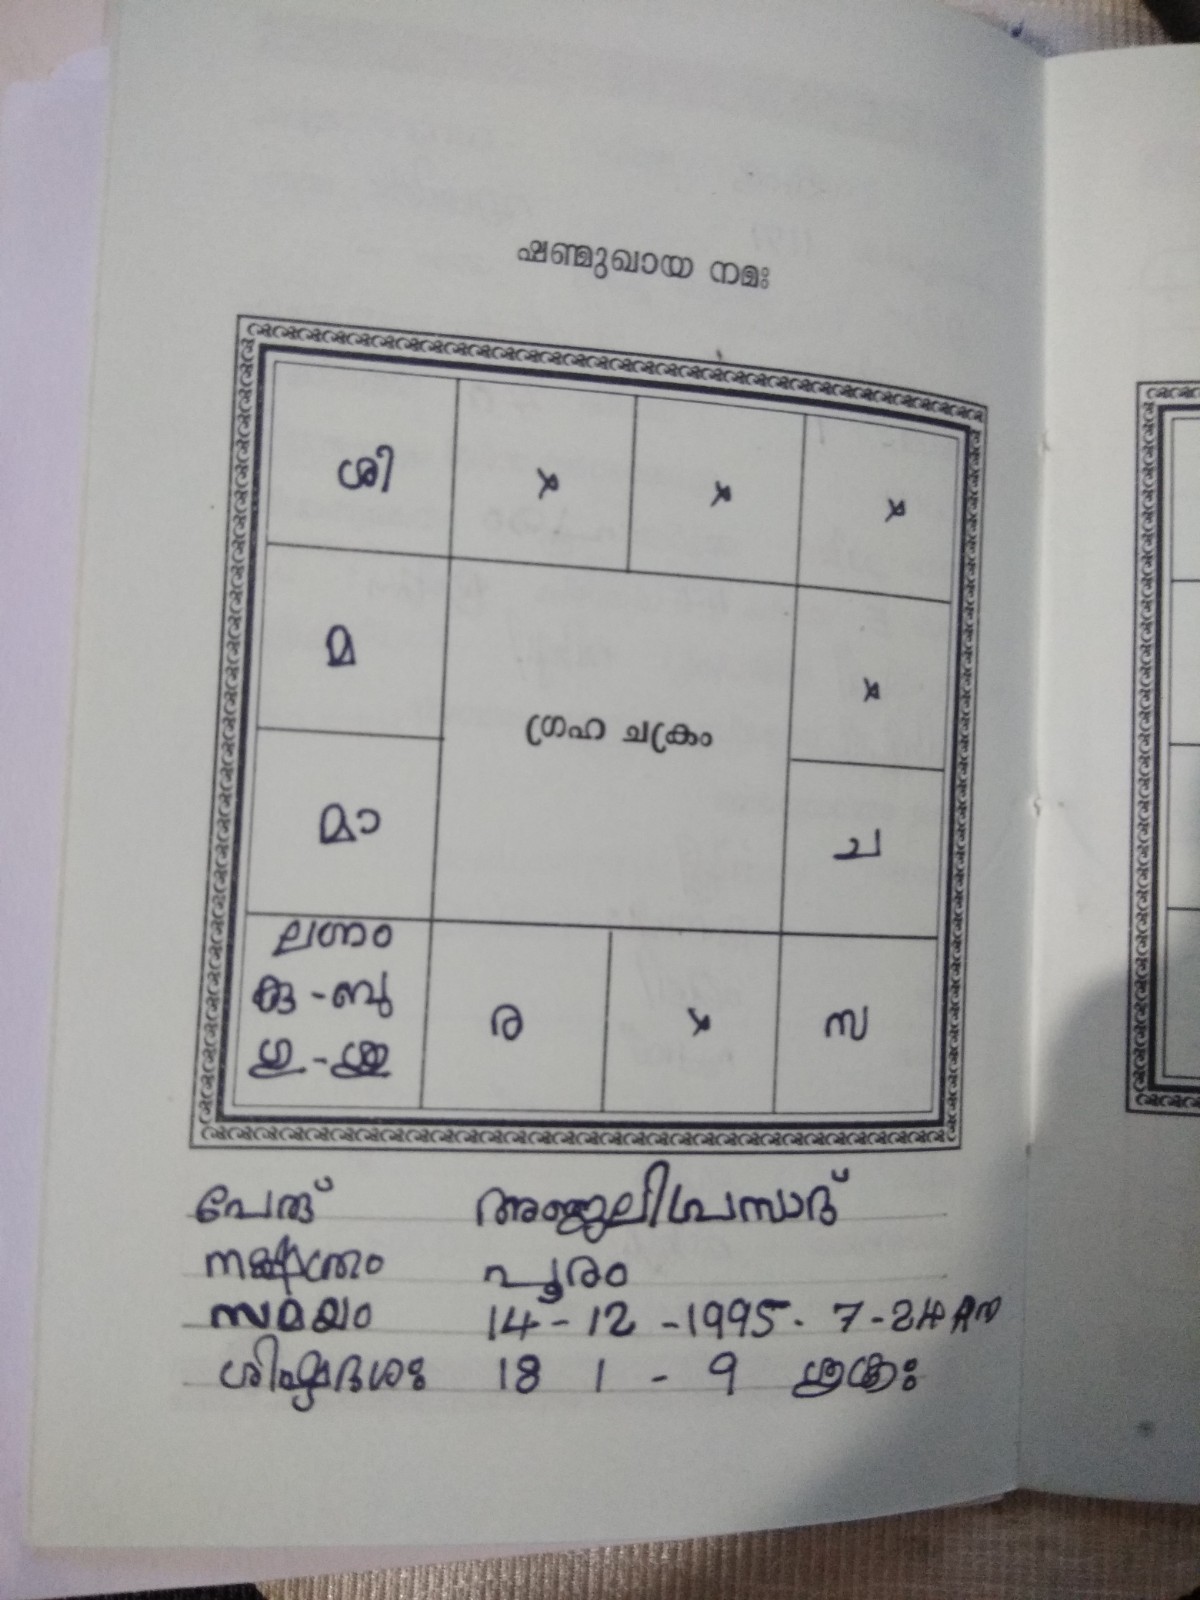 ഷണ്മുഖായ നമഃ
ശി x x x
മ x
ഗ്രഹ ചക്രം
മാ ച
ലഗ്നം
കു - ബു ര x സ
ഗു - ശു
പേര് അഞ്ജലിപ്രസാദ്
നക്ഷത്രം പൂരം
സമയം 14-12-1995. 7-24 AM
ശിഷ്ടദശഃ 18 1 - 9 ശുക്രഃ